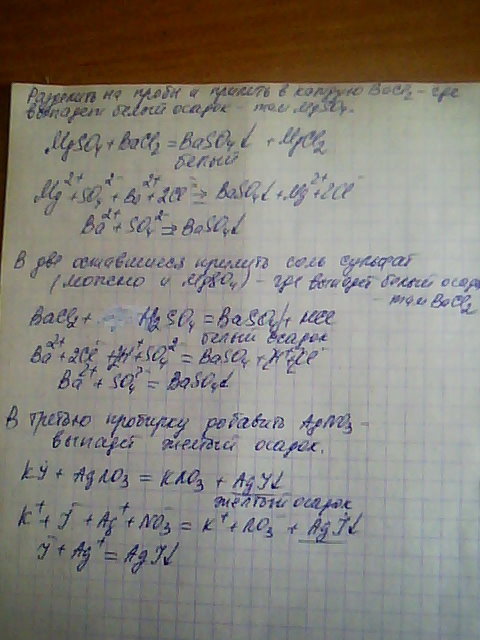 Разделить на пробы и прилить в каждую BaCl₂ – где
выпадет белый осадок – там MgSO₄.
MgSO₄ + BaCl₂ = BaSO₄↓ + MgCl₂
белый
Mg²⁺ + SO₄²⁻ + Ba²⁺ + 2Cl⁻ = BaSO₄↓ + Mg²⁺ + 2Cl⁻
Ba²⁺ + SO₄²⁻ = BaSO₄↓
В две оставшиеся прилить соль сульфат
(можно и MgSO₄) – где выпадет белый осадок
– там BaCl₂
BaCl₂ + H₂SO₄ = BaSO₄↓ + HCl
белый осадок
Ba²⁺ + 2Cl⁻ + 2H⁺ + SO₄²⁻ = BaSO₄ + H⁺ + Cl⁻
Ba²⁺ + SO₄²⁻ = BaSO₄↓
В третью пробирку добавить AgNO₃ –
выпадет желтый осадок.
KJ + AgNO₃ = KNO₃ + AgJ↓
желтый осадок
K⁺ + J⁻ + Ag⁺ + NO₃⁻ = K⁺ + NO₃⁻ + AgJ↓
J⁻ + Ag⁺ = AgJ↓